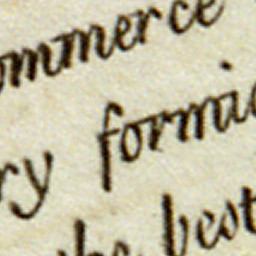 ommerce
ry formi
the best